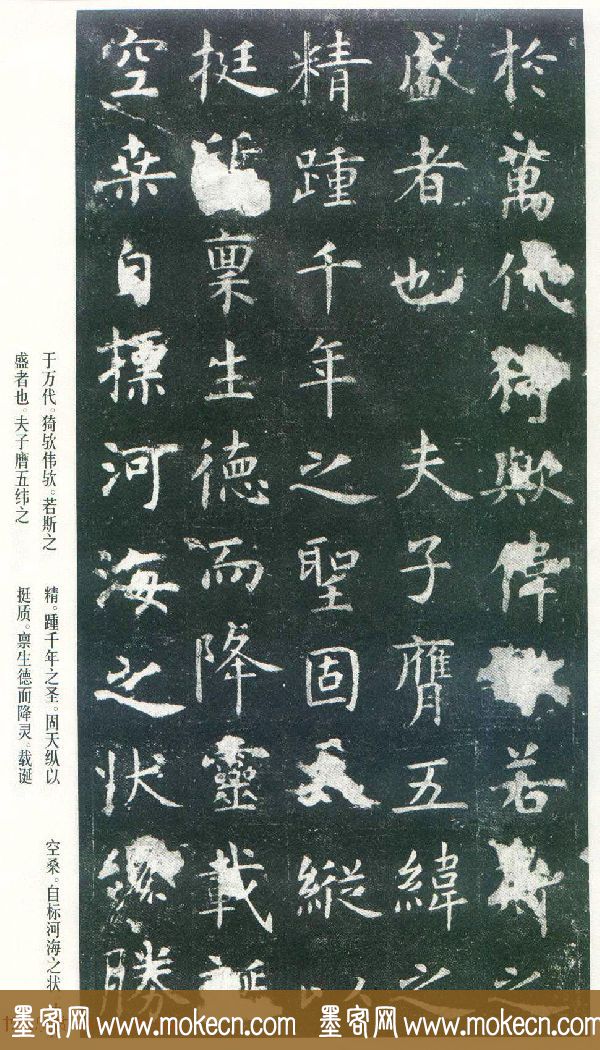 於萬代猗歟偉若斯之
盛者也夫子膺五緯之
精踵千年之聖固天縱以
挺質禀生德而降靈載誕
空桒自摽河海之狀纔勝
于万代。猗欤伟欤。若斯之
盛者也。夫子膺五纬之
精。踵千年之圣。固天纵以
挺质。禀生德而降灵。载诞
空桑。自标河海之状
墨客网 www.mokecn.com 墨客网 www.mokecn.com